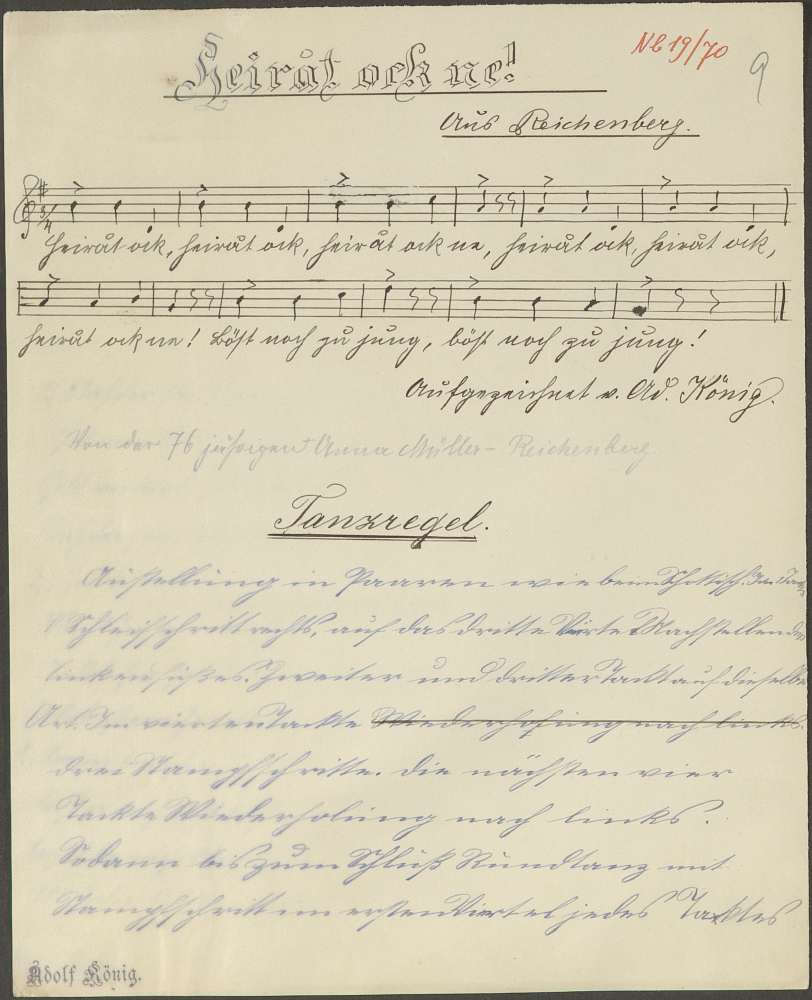 Heiråt ock ne!
Nb 19/70
9
Aus Reichenberg.
3/4
Heiråt ock, heiråt ock, heiråt ock ne, heiråt ock, heiråt ock,
heiråt ock ne! Böst noch zu jung, böst noch zu jung!
Aufgezeichnet v. Ad. König.
Von der 76 jährigen Anna Müller - Reichenberg
Tanzregel.
Aufstellung in Paaren wie beim Schottisch. Im
1 Schleifschritt rechts, auf das dritte Viertel Nachstellen des
linken Fußes. Zweiter und dritter Takt auf dieselbe
Art. Im vierten Takte Wiederholung nach links.
drei Stampfschritte. Die nächsten vier
Takte Wiederholung nach links.
Sodann bis zum Schluß Rundtanz mit
Stampfschritt im ersten Viertel jedes Taktes
Adolf König.